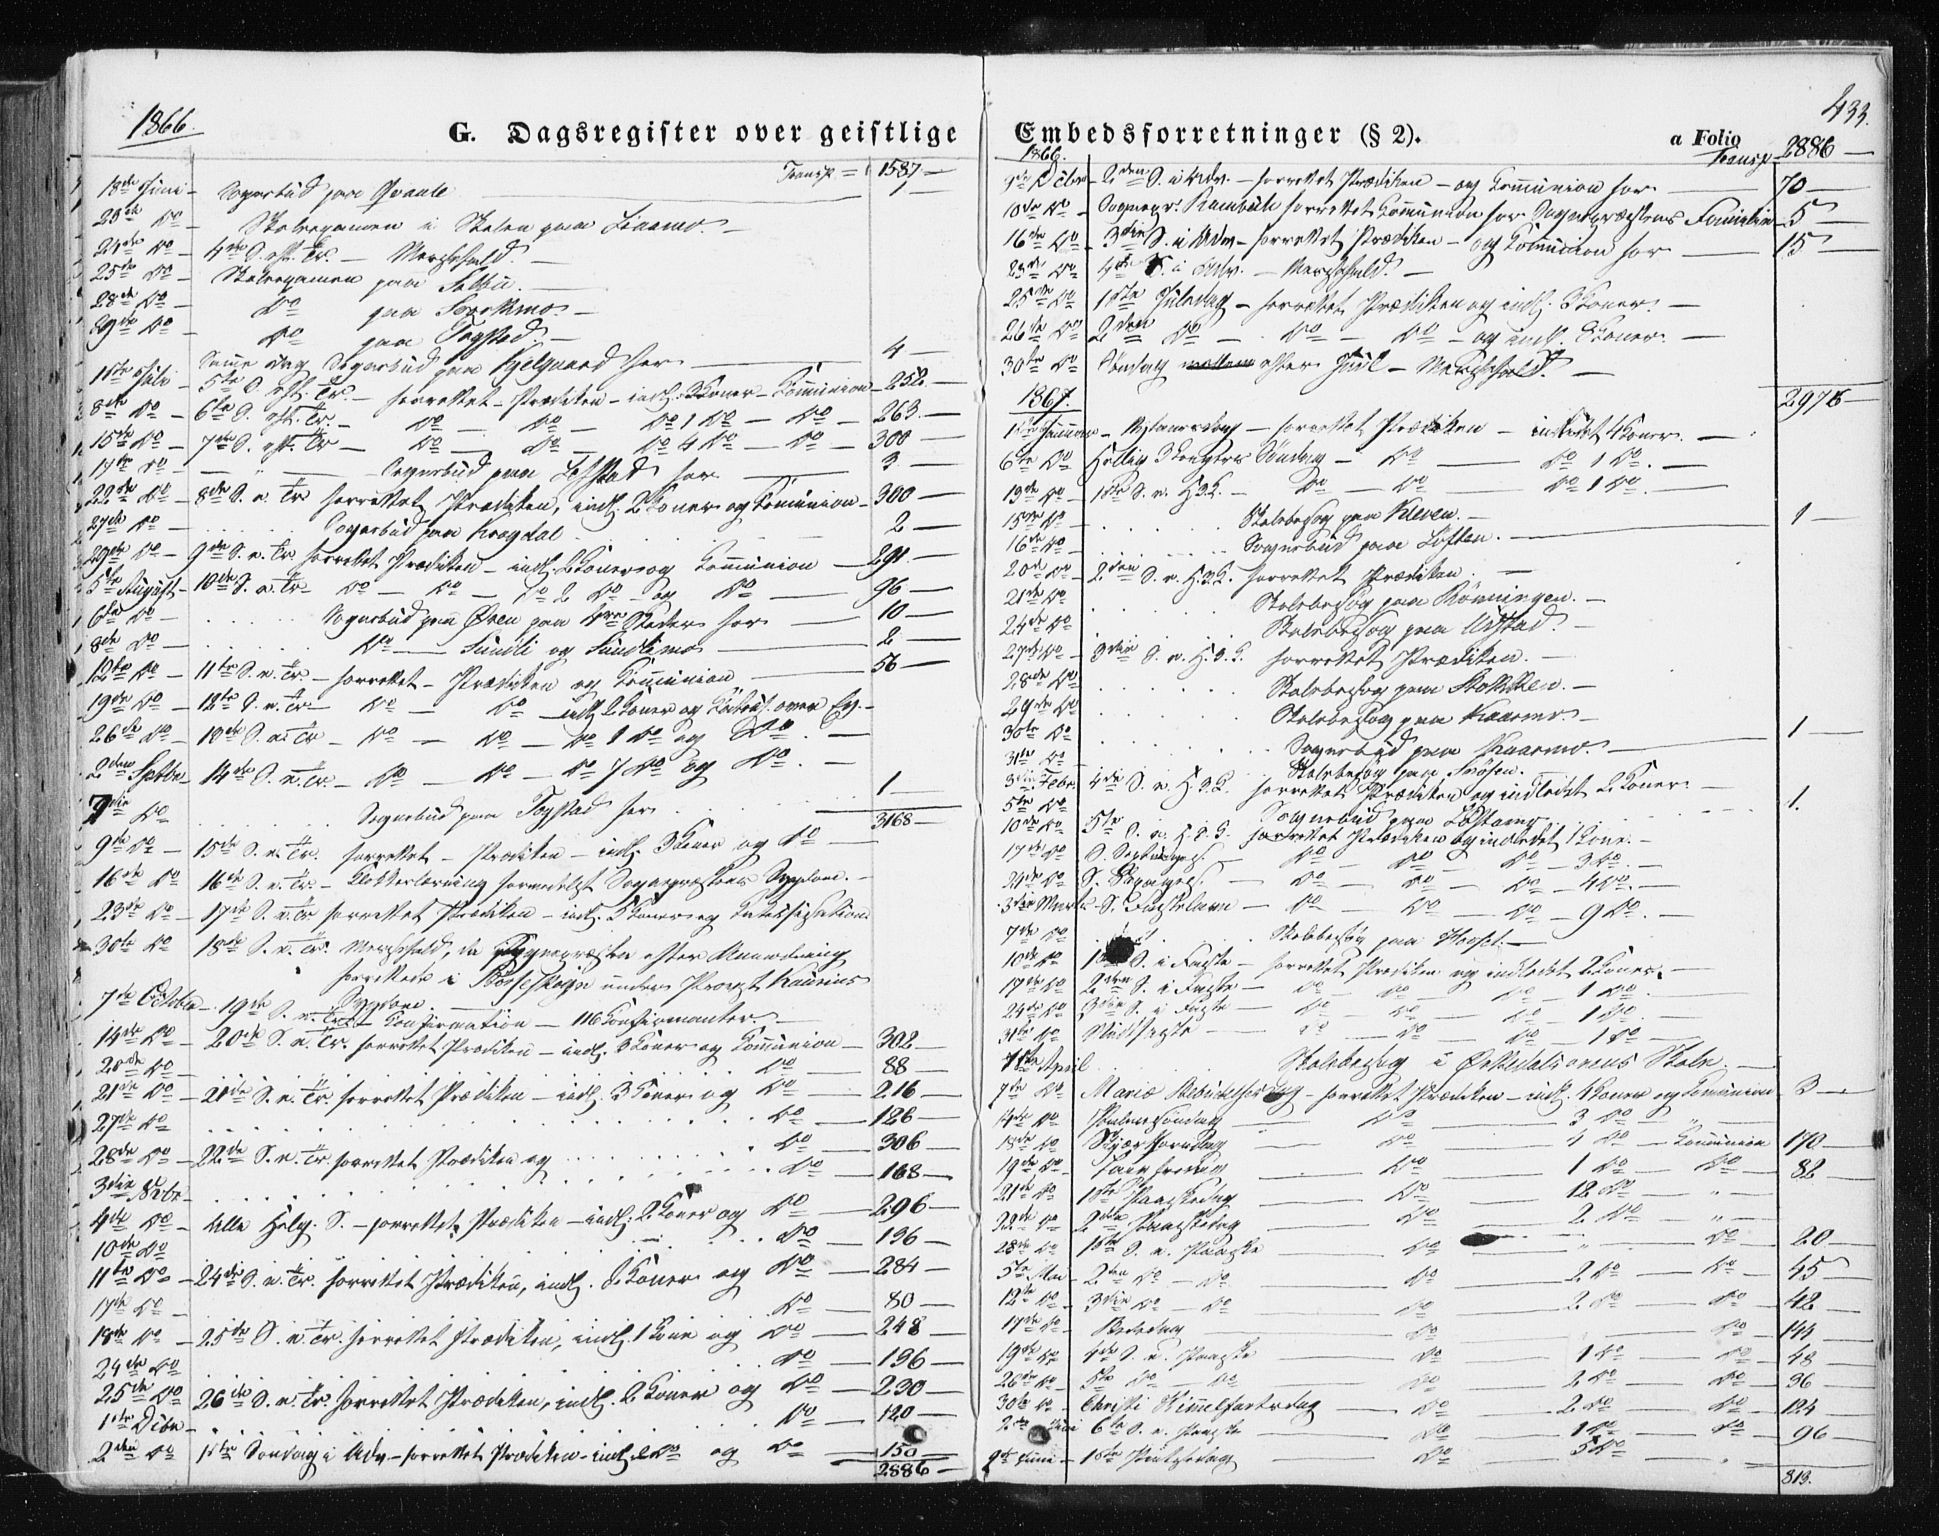 1866.
G. Dagsregister over geistlige
Transp. 1587
18de Juni Sognebud paa Qvaale 1
23de Do Skoleexamen i Skolen paa
24de Do 4de S. eft. Tr. Messefald.
25de Do Skoleexamen paa
28de Do Do paa
29de Do Do paa
Samme Dag Sognebud paa Kjelgaard for 4
1ste Juli 5te S. eft. Tr. forrettet Prædiken indl. Koner Communion 252
8de Do 6te S. eft. Tr. Do Do Do 1 Do Do 263
15de Do 7de S. eft. Tr. Do Do Do 4 Do Do 300
17de Do Sognebud paa for 3
22de Do 8de S. e. Tr. forrettet Prædiken, indl. 2 Koner og Communion 300
27de Do Sognebud paa Krogdal 2
29de Do 9de S. e. Tr. forrettet Prædiken indl. 2 Koner og Communion 291
5te August 10de S. e. Tr. Do Do Do 2 Do og Do 96
6te Do Sognebud paa Øren paa Steder for 10
8de Do Do Sundli og Sundlimo 2
12te Do 11te S. e. Tr. forrettet Prædiken og Communion 56
19de Do 12te S. e. Tr. Do Do indl. 2 Koner og over Ev.
26de Do 13de S. e. Tr. Do Do Do 1 Do og Do
2den Septbr 14de S. e. Tr. Do Do Do 7 Do og Do
7de Do Sognebud paa for 1
3168
9de Do 15de S. e. Tr. forrettet Prædiken indl. 3 Koner og Do
16de Do 16de S. e. Tr. Klokkerlæsning formedelst Sognepræstens Sygdom.
23de Do 17de S. e. Tr. forrettet Prædiken indl. Koner og Catechisation
30te Do 18de S. e. Tr. Messefald, da Sognepræsten efter Anordning
forrettede i under Provst
Sygdom
7de October 19de S. e. Tr. Confirmation 116 Confirmanter
14de Do 20de S. e. Tr. forrettet Prædiken indl. 3 Koner og Communion 302
20de Do Do 88
21de Do 21de S. e. Tr. forrettet Prædiken indl. 3 Koner og Do 216
27de Do Do 126
28de Do 22de S. e. Tr. forrettet Prædiken og Do 306
3die Nvbr. Do 168
4de Do Alle Helg. S. forrettet Prædiken indl. 2 Koner og Do 296
10de Do Do 196
11te Do 24de S. e. Tr. forrettet Prædiken, indl. Koner og Do 284
17de Do Do 80
18de Do 25de S. e. Tr. forrettet Prædiken, indl. 1 Kone og Do 248
24de Do Do 196
25de Do 26de S. e. Tr. forrettet Prædiken, indl. 2 Koner og Do 230
1ste Dcbr. Do 120
2den Do 1ste Søndag i Adv. forrettet Prædiken indl. Do og Do 150
2886
433.
Embedsforretninger (§ 2).
a Folio
1866. Transp. 2886
9de Dcbr. 2den S. i Adv. forrettet Prædiken og Communion for 70
10de Do Sognepr. forrettet Communion for Sognepræstens Familie 5
16de Do 3die S. i Adv. forrettet Prædiken og Communion for 15
23de Do 4de S. i Adv. Messefald.
25de Do 1ste Juledag forrettet Prædiken og indl. 3 Koner.
26de Do 2den Do Do Do og indl. Koner.
30te Do Søndag mellem efter Juul Messefald.
2976
1867.
1ste Januar Nytaarsdag forrettet Prædiken indledet 4 Koner.
6te Do Hellig 3 Kongers Søndag Do Do 1 Do.
13de Do 1ste S. e. H. 3 K. Do Do Do 1 Do.
15de Do Skolebesøg paa Kleven.
16de Do Sognebud paa Loften. 1
20de Do 2den S. e. H. 3 K. forrettet Prædiken.
21de Do Skolebesøg paa Rønningen.
24de Do Skolebesøg paa
27de Do 3die S. e. H. 3 K. forrettet Prædiken.
28de Do Skolebesøg paa
29de Do Skolebesøg paa
30te Do Sognebud paa 1
31te Do Skolebesøg paa
3die Febr. 4de S. e. H. 3 K. forrettet Prædiken og indledet 2 Koner
5te Do Sognebud paa 1.
10de Do 5te S. e. H. 3 K. forrettet Prædiken og indledet 1 Kone.
17de Do S. Septuages. Do Do Do 3 Do.
24de Do S. Sexages. Do Do Do 4 Do.
3die Marts S. Fastelavn Do Do Do 9 Do.
7de Do Skolebesøg paa
10de Do 1ste S. i Faste forrettet Prædiken og indledet 2 Koner.
17de Do 2den S. i Faste Do Do Do 1 Do.
24de Do 3die S. i Faste Do Do Do 1 Do.
31te Do Midfaste Do Do Do 1 Do
1ste April Skolebesøg i Ørkedalsørens Skole
7de Do Mariæ Bebudelsesdag forrettet Prædiken indl. Koner og Communion 3
14de Do Palmesøndag Do 3 Do "
18de Do Skjærthorsdag Do 4 Do Communion 170
19de Do Langfredag Do 1 Do Do 82
21de Do 1ste Paaskedag Do 12 Do "
22de Do 2den Paaskedag Do 2 Do "
28de Do 1ste S. e. Paaske Do " Do 20
5te Mai 2den Do Do Do 2 Do Do 45
12te Do 3die Do Do Do 2 Do Do 42
17de Do Bededag Do " Do 144
19de Do 4de S. e. Paaske Do 1 Do Do 48
26de Do 5te Do Do Do 2 Do Do 36
30te Do Christi Himmelfartsdag Do 2 Do Do 124
2den Juni 6te S. e. Paaske Do 1 Do Do 96
9de Juni 1ste Pintsedag Do 5 Do "
813.